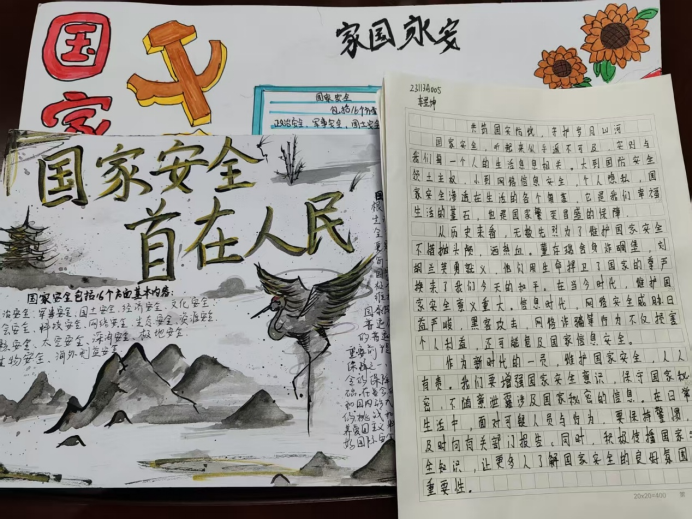 国家
家国永安
国家安全
包括16个方面
政治安全、军事安全、国土安全
国家安全
首在人民
国家安全包括16个方面基本内容:
治安全、军事安全、国土安全、经济安全、文化安全、
会安全、科技安全、网络安全、生态安全、资源安全、
核安全、太空安全、深海安全、极地安全、
生物安全、海外利益安全
231134005
国家安全,听起来似乎遥不可及,实则与
我们每一个人的生活息息相关。大到国防安全
领土主权,小到网络信息安全,个人隐私,国
家安全渗透在生活的各个角落,它是我们幸福
生活的基石,也是国家繁荣昌盛的保障
从历史来看,无数先烈为了维护国家安全
不惜抛头颅,洒热血。董存瑞舍身炸碉堡,刘
胡兰英勇就义,他们用生命捍卫了国家的尊严
换来了我们今天的和平。在当今时代,维护国
家安全意义重大。信息时代,网络安全威胁日
益严峻,黑客攻击,网络诈骗等行为不仅损害
个人利益,还可能危及国家信息安全。
作为新时代的一员,维护国家安全,人人
有责。我们要增强国家安全意识,保守国家秘
密,不随意泄露涉及国家秘密的信息,在日常
生活中,面对可疑人员与行为,要保持警惕
及时向有关部门报告。同时,积极传播国家安
全知识,让更多人了解国家安全的良好氛围
重要性。
20×20=400